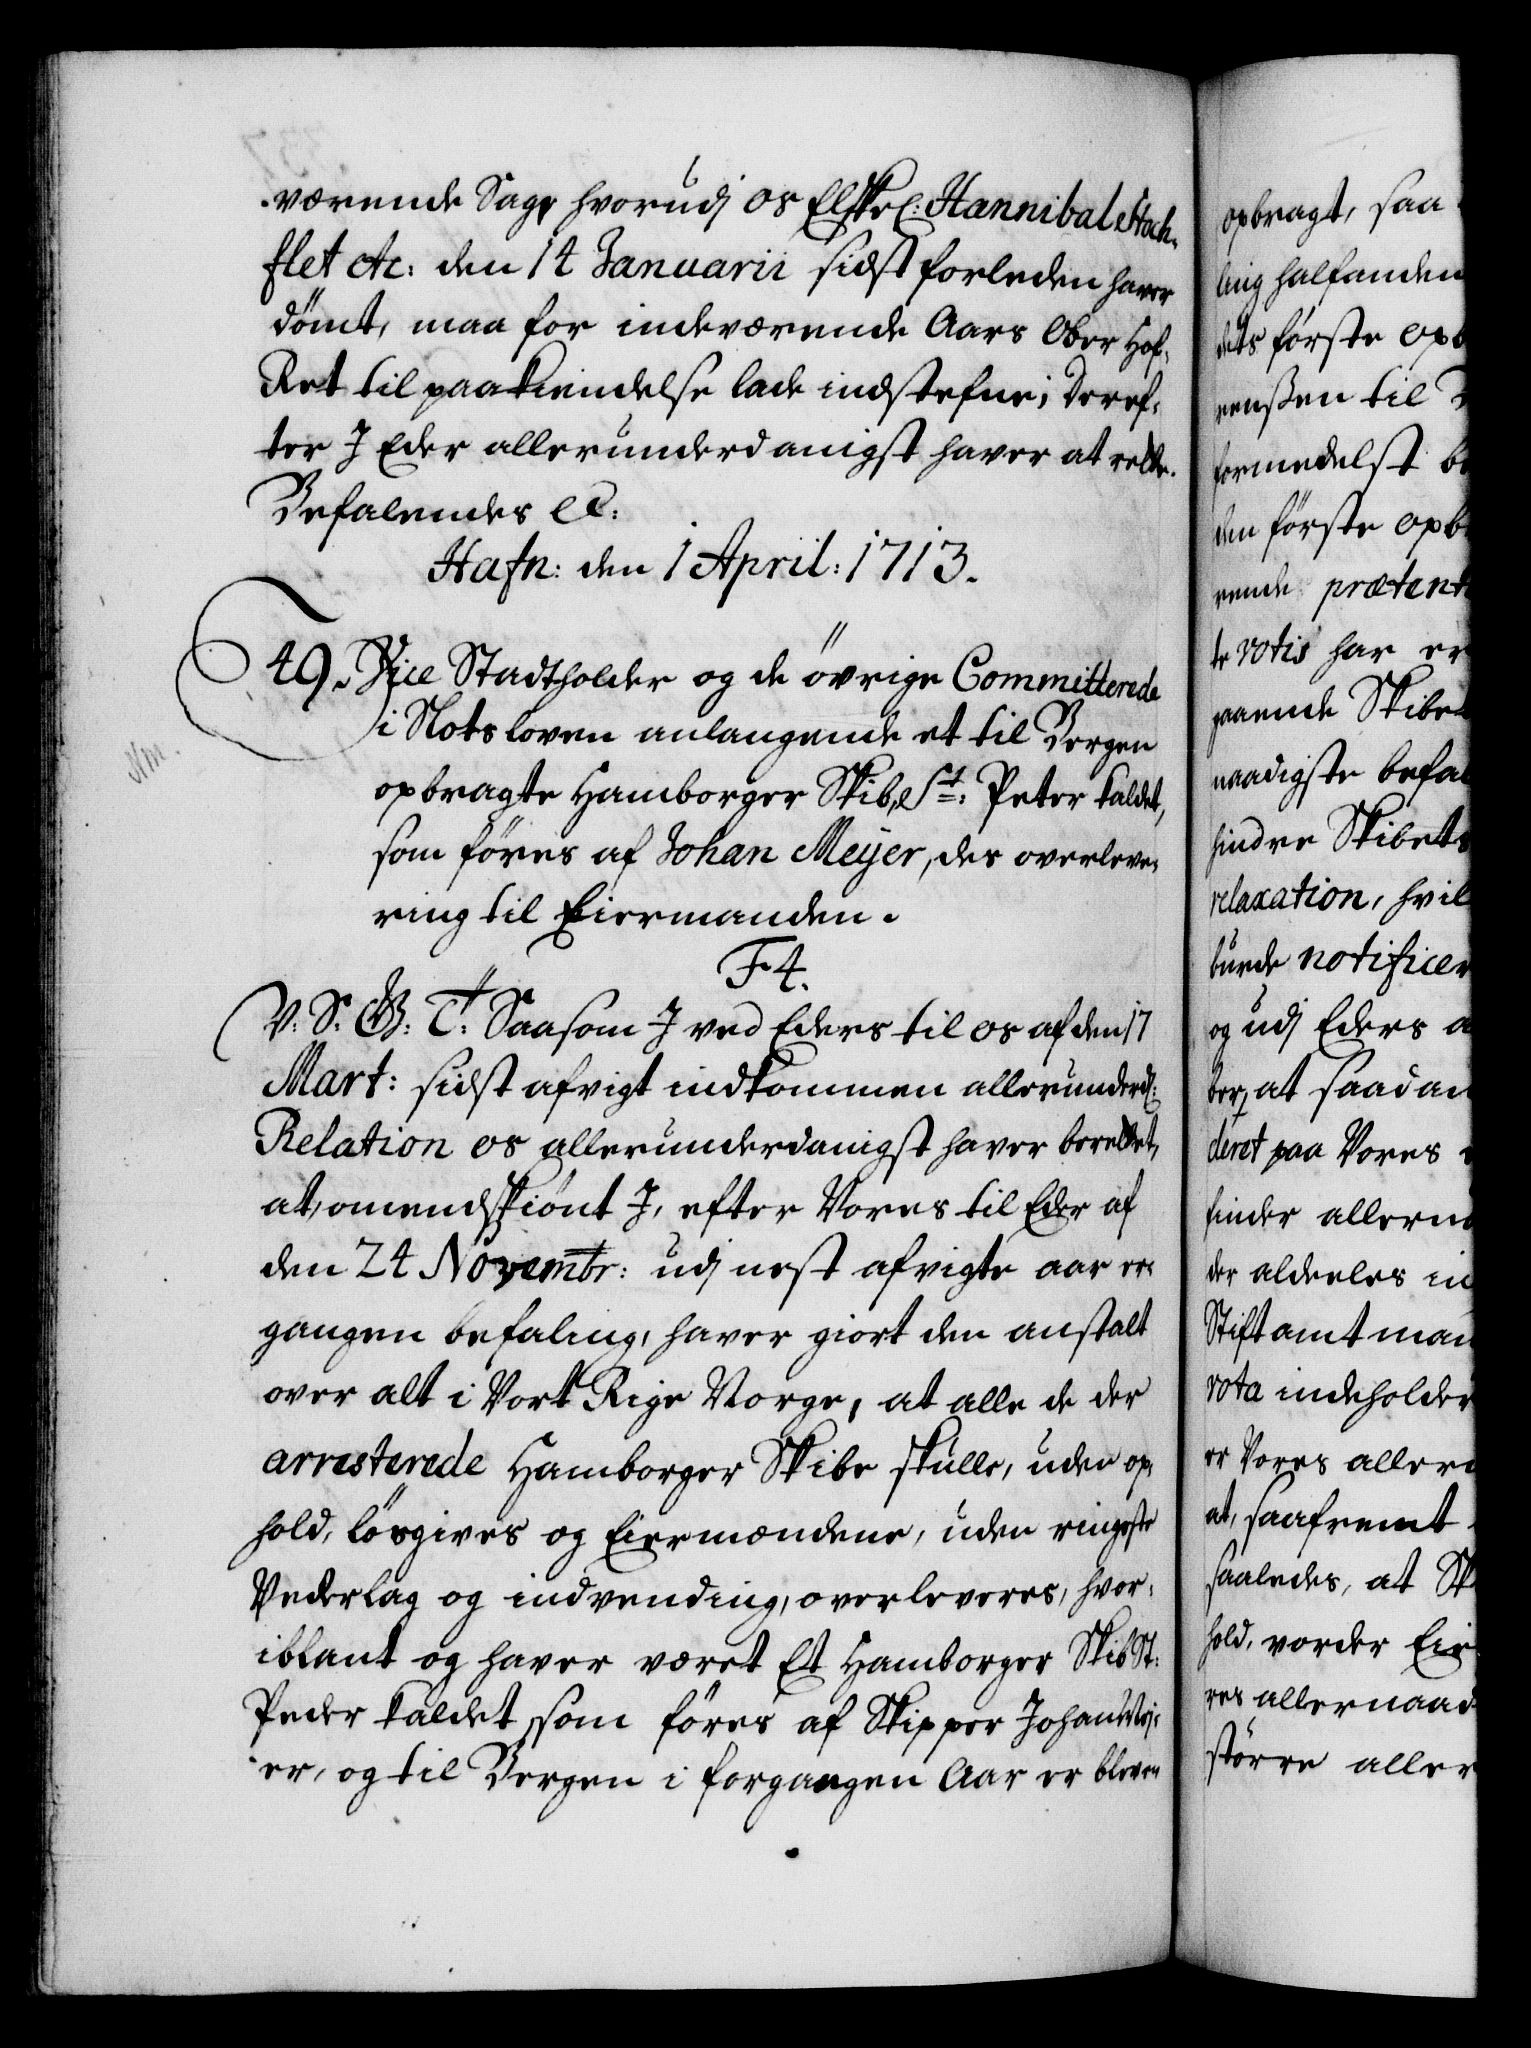 værende Sag, hvorudj os Elskel: Hannibal Stoch-
flet etc: den 14 Januarii sidst forleden haver
dömt, maa for indeværende Aars Ober Hof-
Ret til paakiendelse lade indstefne; Deref-
ter I Eder allerunderdanigst haver at rette.
Befalendes etc:
Hafn: den 1 April: 1713.
49. Vice Stadtholder og de övrige Committerede
i Slots loven anlangende et til Bergen
opbragte Hamborger Skib, St: Peter kaldet,
som föres af Johan Meyer, des overleve-
ring til Eiermanden.
F4.
V: S: G: T: Saasom I ved Eders til os af den 17
Mart: sidst afvigt indkommen allerunderd:
Relation os allerunderdanigst haver berettet,
at, omendskiönt I, efter Vores til Eder af
den 24 Novembr: udj nest afvigte aar er-
gangen befaling, haver giort den anstalt
over alt i Vort Rige Norge, at alle de der
arresterede Hamborger Skibe skulle, uden op-
hold, lösgives og Eiermændene, uden ringeste
Vederlag og indvending, overleveres, hvor-
iblant og haver været Et Hamborger Skib St:
Peder kaldet, som föres af Skipper Johan Mej-
er, og til Bergen i forgangen Aar er bleven
Nm.
opbragt, saa
ling halfanden
dets förste opb
renssen til
formedelst be
den förste opb
rende prætent
te votis har er
paaende Skibet
naadigste befal
hindre Skibets
relaxation, hvil
burde notificer
og udj Eders a
ber, at saadan
deret paa Vores
finder allerna
der aldeeles in
Stiftamtman
vota indeholder
er Vores allern
at, saafremt
saaledes, at Sk
hold, vorder Eir
res allernaad
större aller